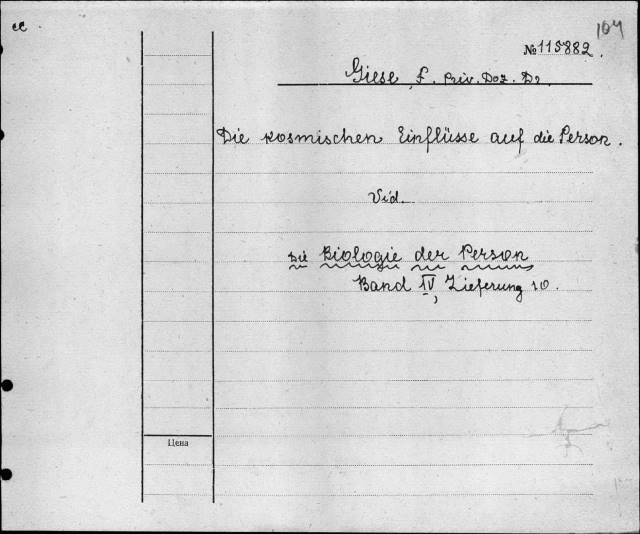 cc
104
№ 115882.
Giese, F. Priv. Doz. Dr
Die kosmischen Einflüsse auf die Person.
Vid.
Die Biologie der Person
Band IV, Lieferung 10.
Цена